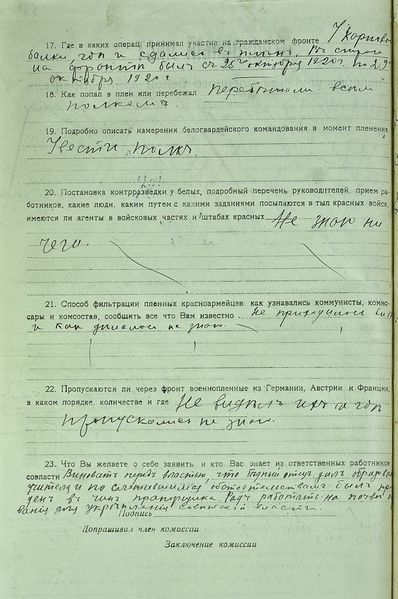 17. Где в каких операц. принимал участие на гражданском фронте У Карповой
балки, где и сдались в плен. В строю
на фронте былъ съ 25го октября 1920 г. по 29
октября 1920 г.
18. Как попал в плен или перебежал перебежали всем
полкомъ.
19. Подробно описать намерения белогвардейского командования в момент пленения
Увести полкъ.
20. Постановка контрразведки у белых, подробный перечень руководителей, прием ра-
ботников, какие люди, каким путем с какими заданиями посылаются в тыл красных войск,
имеются ли агенты в войсковых частях и штабах красных Не знаю ни
чего.
21. Способ фильтрации пленных красноармейцев, как узнавались коммунисты, комис-
сары и комсостав, сообщить все что Вам известно. Не приходилось
и как дѣлалось не знаю.
22. Пропускаются ли через фронт военнопленные из Германии, Австрии и Франции,
в каком порядке, количестве и где Не видѣлъ ихъ и где
пропускались не знаю.
23. Что Вы желаете о себе заявить и кто Вас знает из ответственных работников
совласти Виноватъ передъ властью, что бѣдный отецъ далъ образов
учителя и по сложившимся обстоятельствамъ былъ
денъ въ чинъ прапорщика. Радъ работать на почве
вания для укрепления советской власти.
Подпись
Допрашивал член комиссии
Заключение комиссии